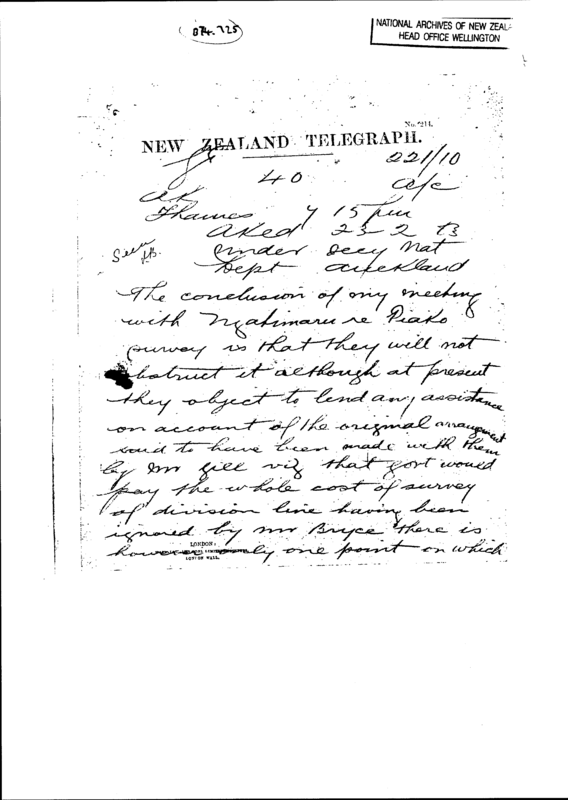 074.725
NATIONAL ARCHIVES OF NEW ZEAL
HEAD OFFICE WELLINGTON
No. 214.
NEW ZEALAND TELEGRAPH.
221/10
40
a/c
AK
Thames 7 15 pm
Aked 23-2 83
Seen
Under Secy Nat
Dept Auckland
The conclusion of my meeting
with Ngatimaru re Piako
survey is that they will not
obstruct it although at present
they object to lend any assistance
on account of the original arrangement
said to have been made with them
by Mr Gill viz that govt would
pay the whole cost of survey
of division line having been
ignored by Mr Bryce there is
however only one point on which
LONDON: